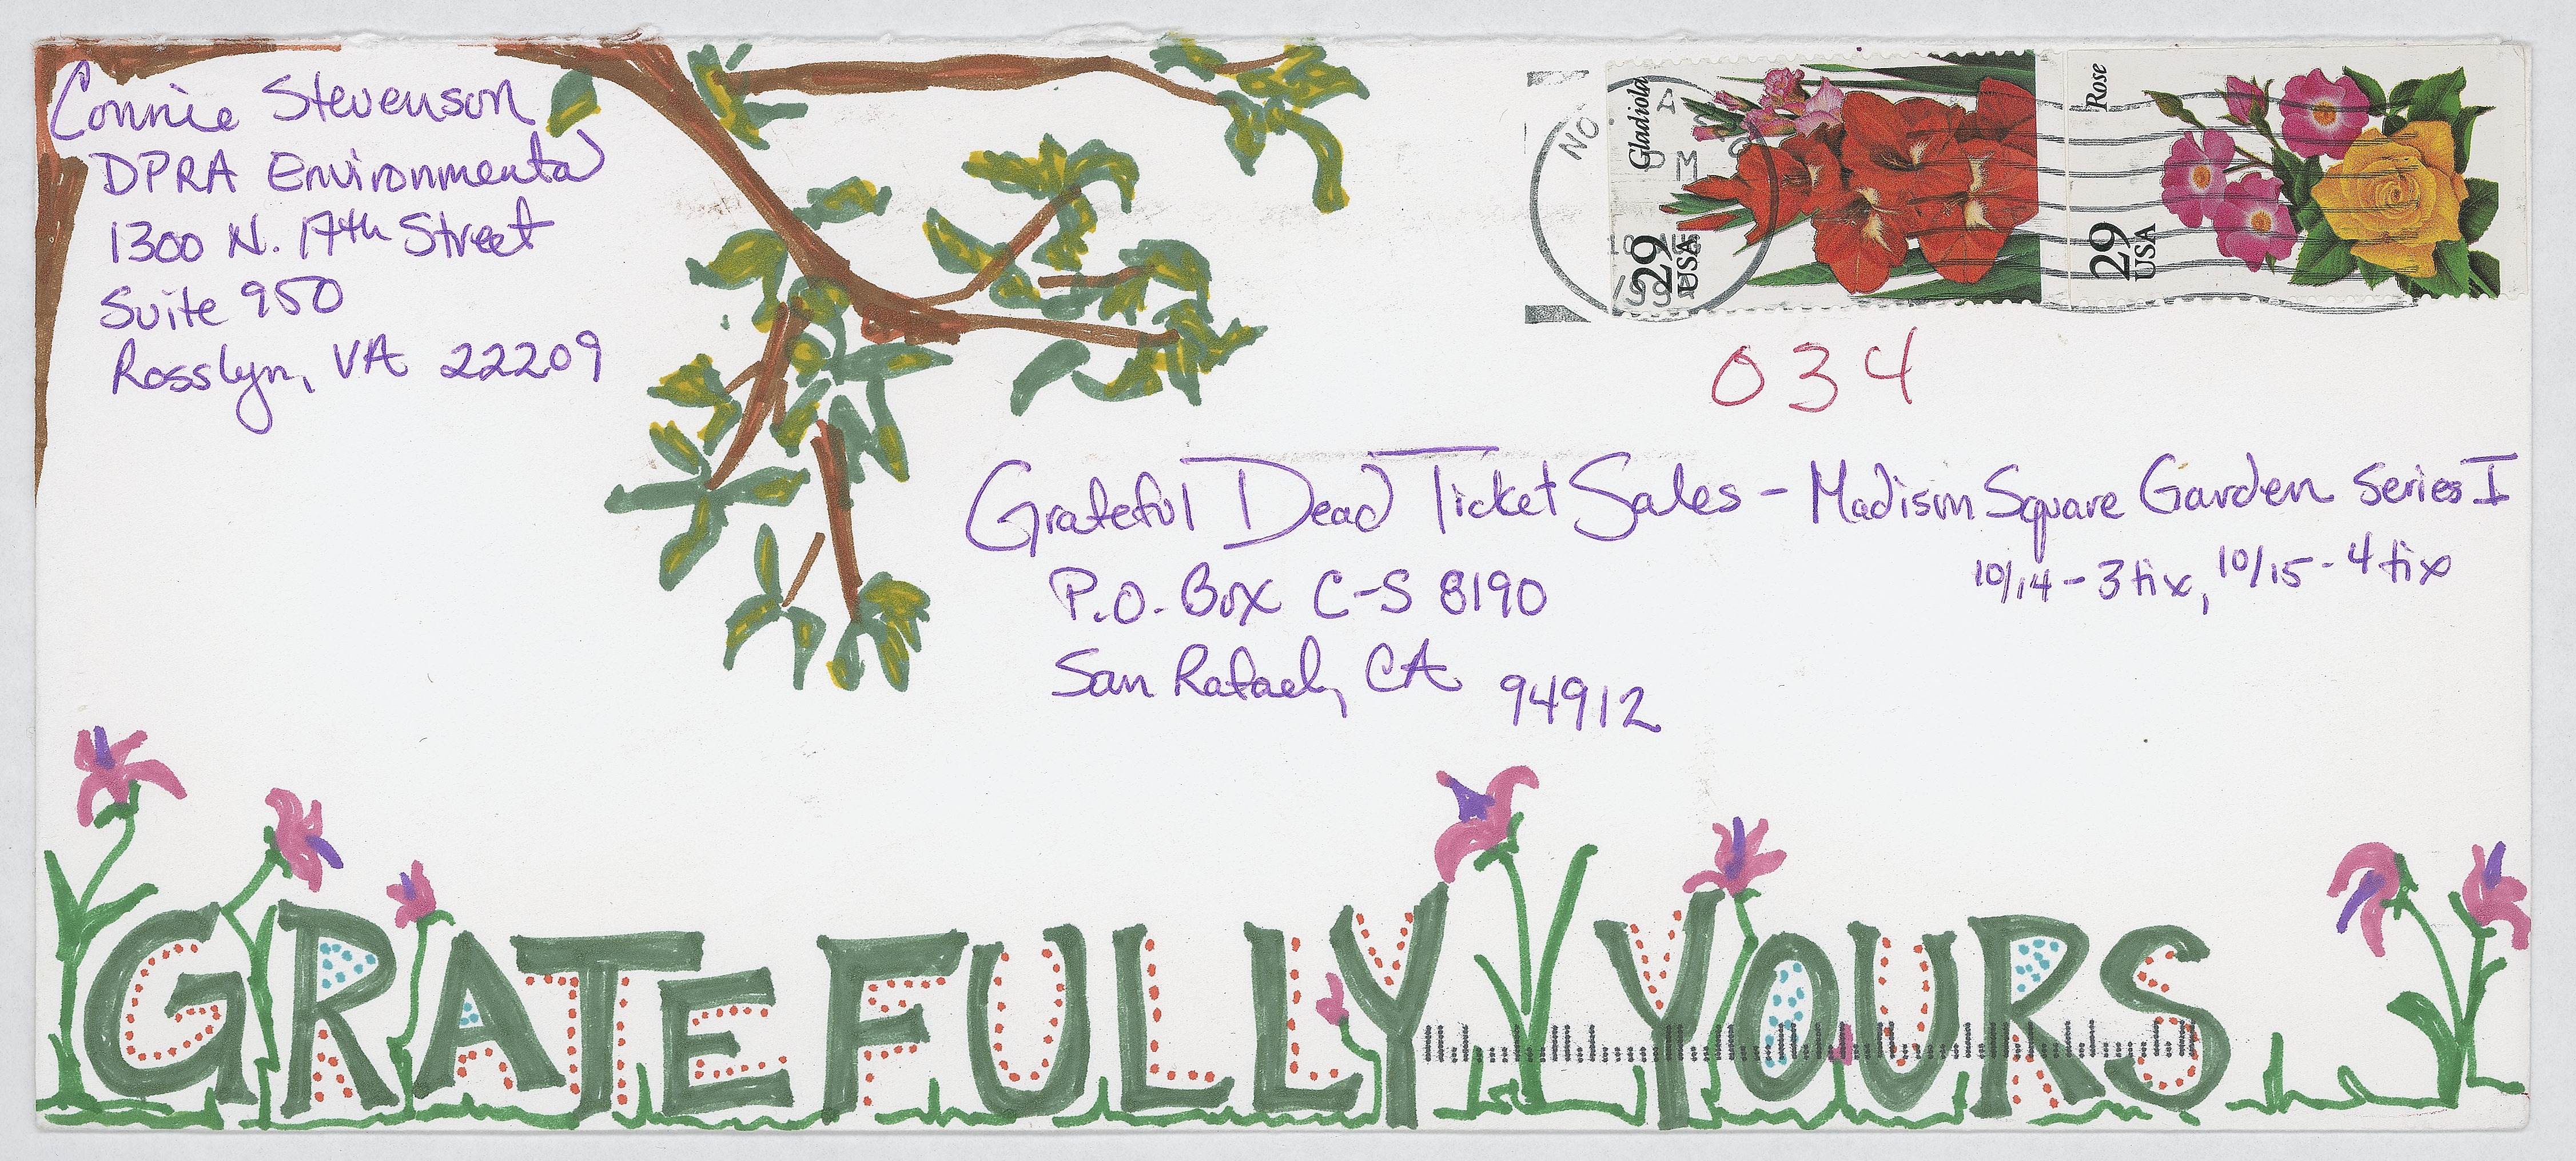 Connie Stevenson
DPRA Environmental
1300 N. 17th Street
Suite 950
Rosslyn, VA 22209
Gladiola
29
USA
Rose
29
USA
NO
10 AUG
034
Grateful Dead Ticket Sales - Madison Square Garden Series I
10/14 - 3 tix, 10/15 - 4 tix
P.O. Box C-S 8190
San Rafael, CA 94912
GRATEFULLY YOURS